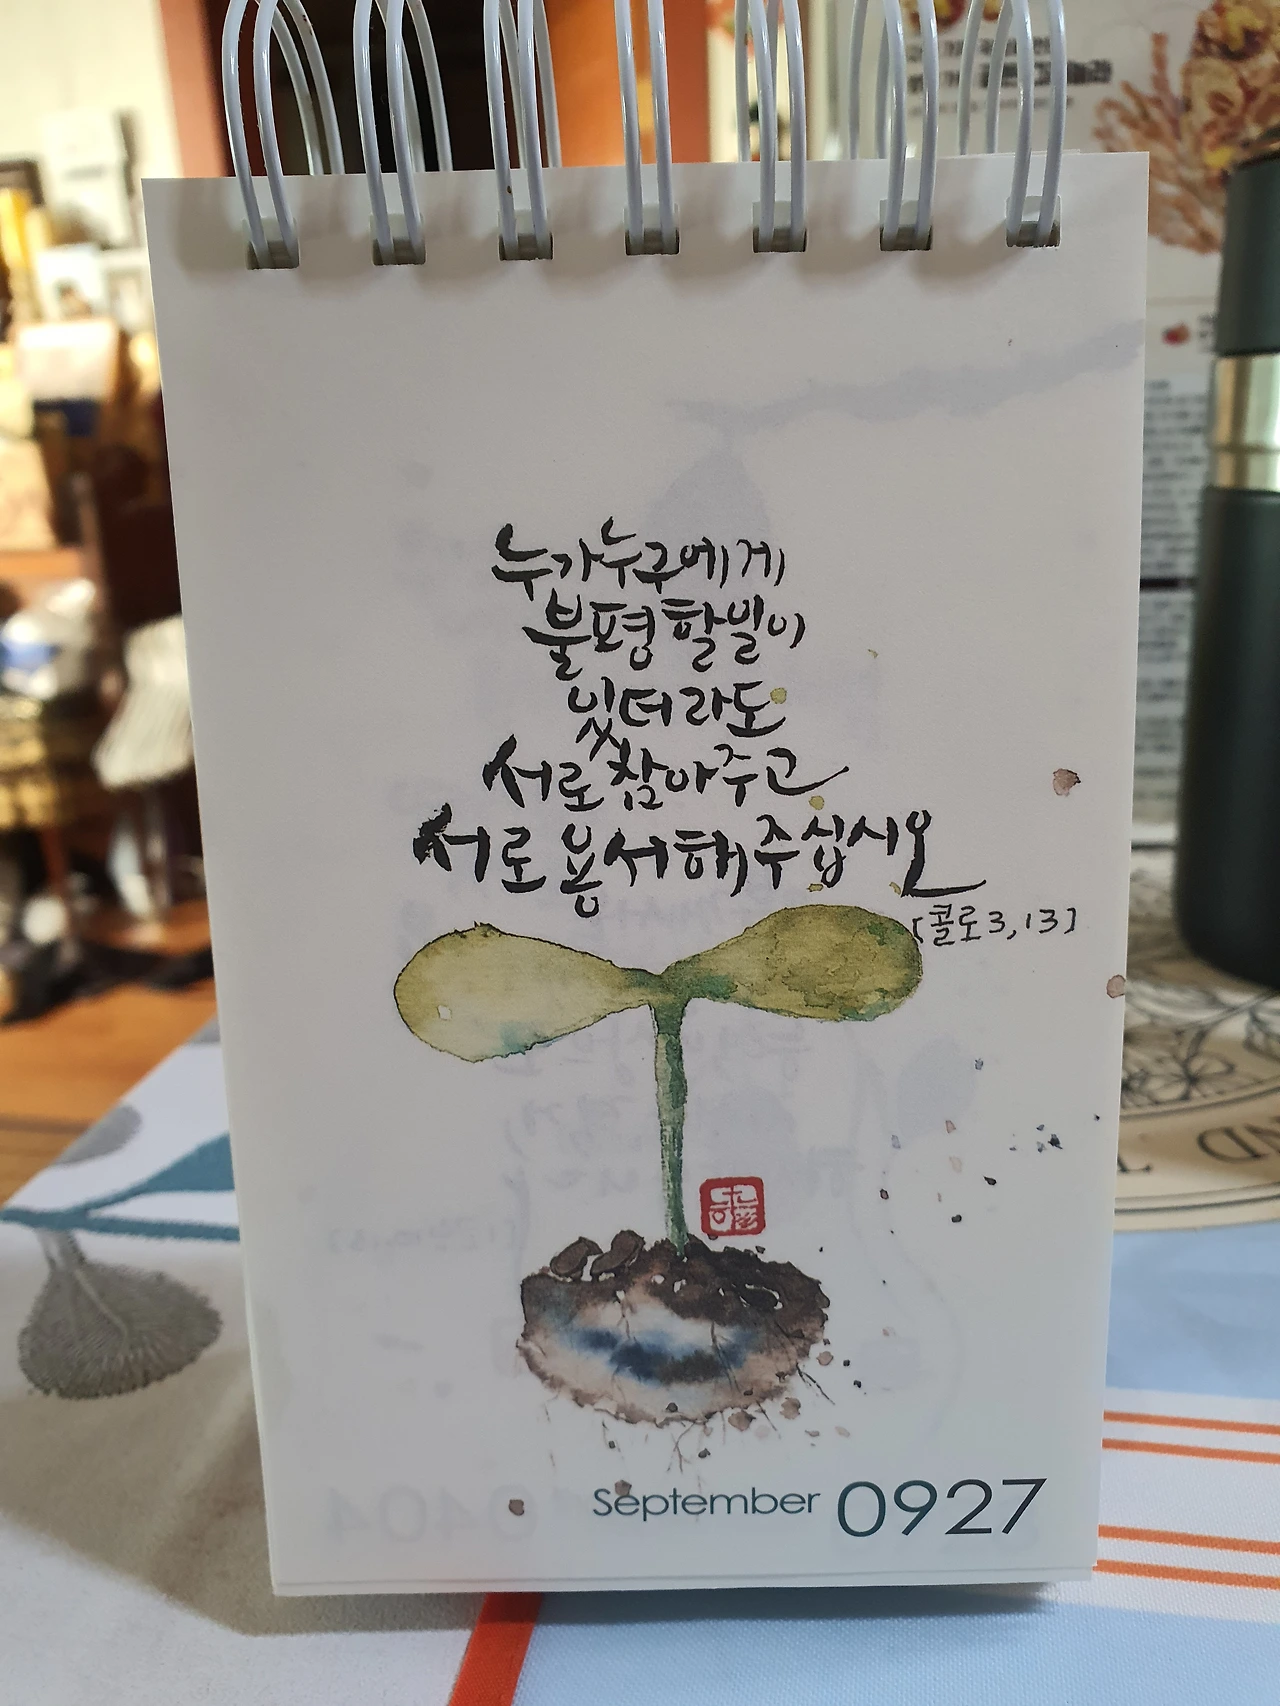 누가누구에게
불평할일이
있더라도
서로참아주고
서로용서해주십시오
[콜로3,13]
September 0927